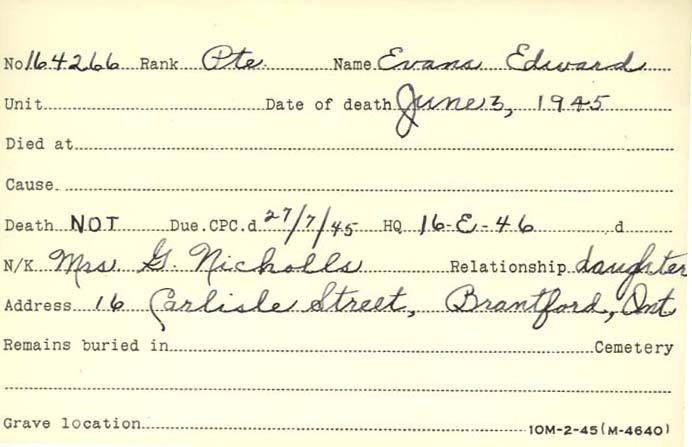 No. 164266 Rank Pte. Name Evans Edward
Unit Date of death June 3, 1945
Died at
Cause.
Death NOT Due.CPC.d 27/7/45 HQ 16-E-46 d
N/K Mrs. G. Nicholls Relationship daughter
Address 16 Carlisle Street, Brantford, Ont
Remains buried in Cemetery
Grave location 10M-2-45(M-4640)